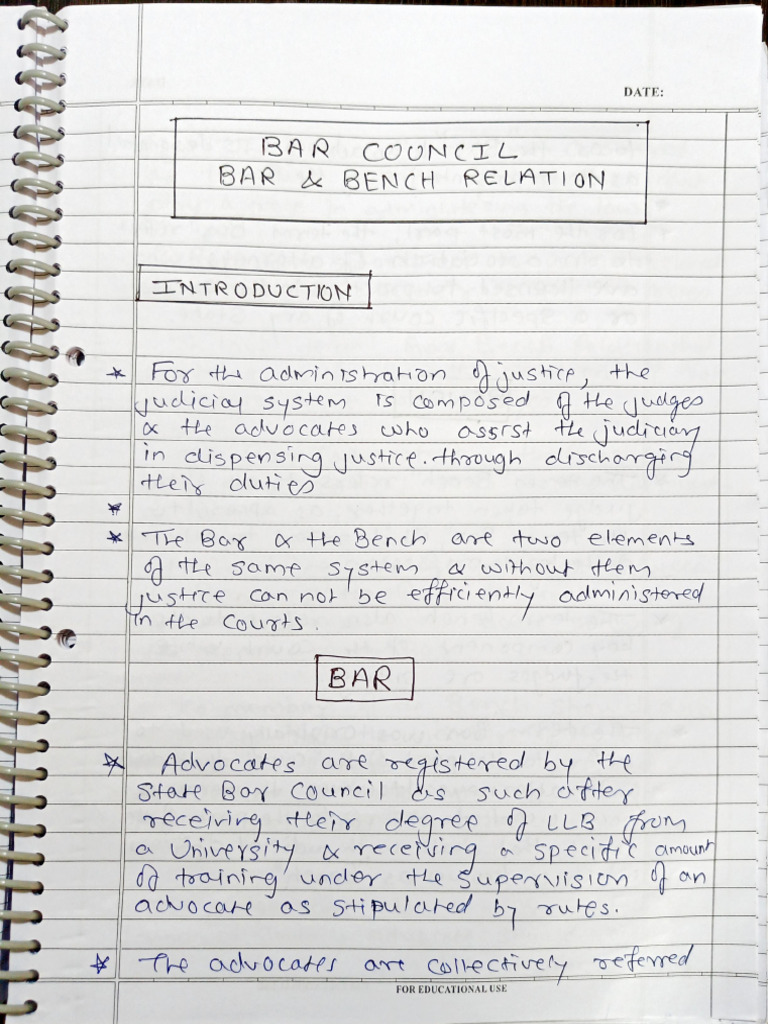 DATE:
BAR COUNCIL
BAR & BENCH RELATION
INTRODUCTION
* For the administration of justice, the
judicial system is composed of the judges
& the advocates who assist the judiciary
in dispensing justice. through discharging
their duties
*
* The Bar & the Bench are two elements
of the same system & without them
justice can not be efficiently administered
in the courts.
BAR
* Advocates are registered by the
State Bar Council as such after
receiving their degree of LLB from
a University & receiving a specific amount
of training under the supervision of an
advocate as stipulated by rules.
* The advocates are collectively referred
FOR EDUCATIONAL USE